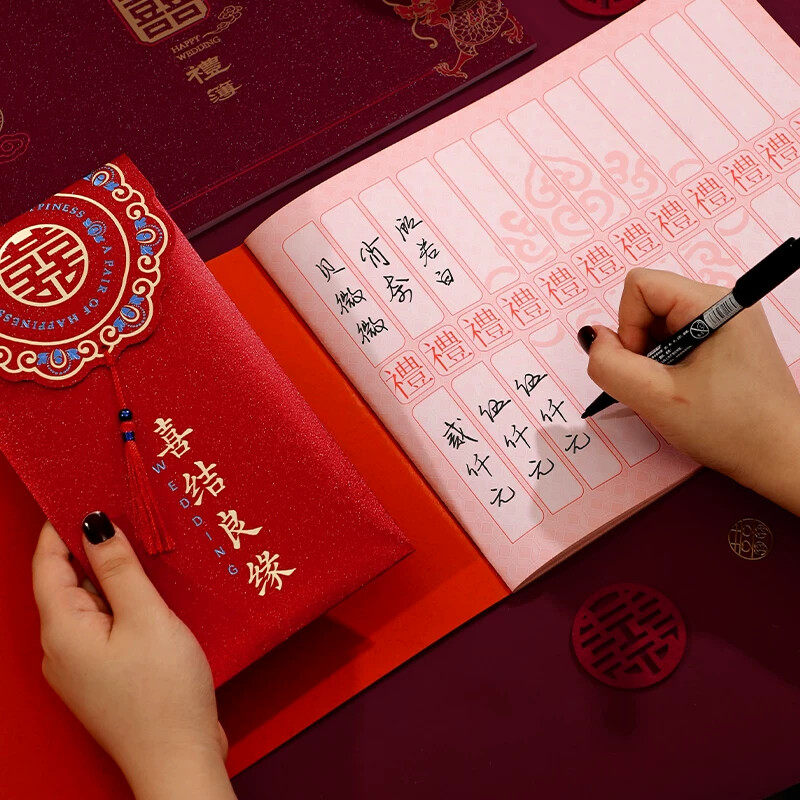 囍
HAPPY
WEDDING
禮簿
PINESS
A PAIR OF HAPPINESS
囍
喜结良缘
WEDDING
贝微微
肖奈
若白
禮禮禮禮禮禮禮禮禮禮禮
贰仟元
伍仟元
伍仟元
囍